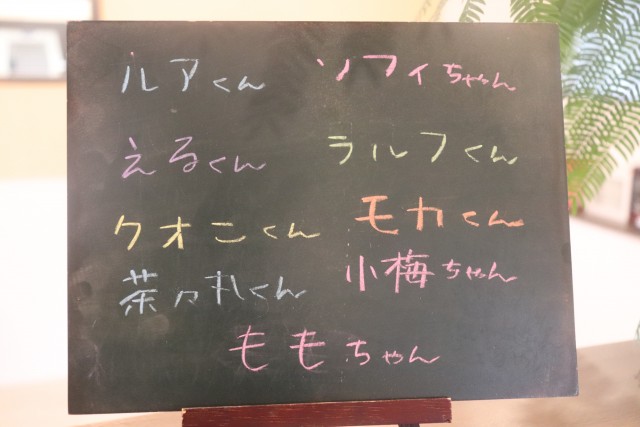 ルアくん ソフィちゃん
えるくん ラルフくん
クオこくん モカくん
茶々丸くん 小梅ちゃん
ももちゃん